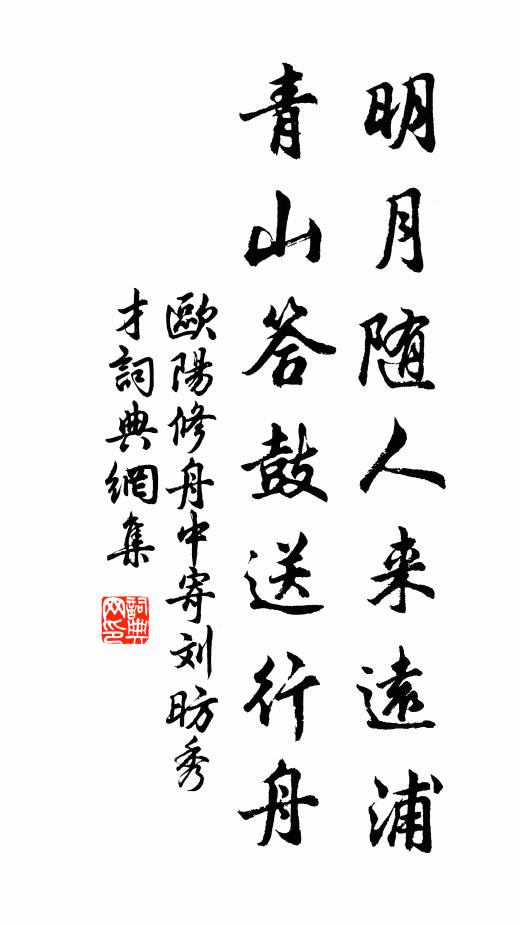 明月随人来遠浦
青山答鼓送行舟
歐陽修舟中寄刘昉秀
才詞典網集
詞典
网印